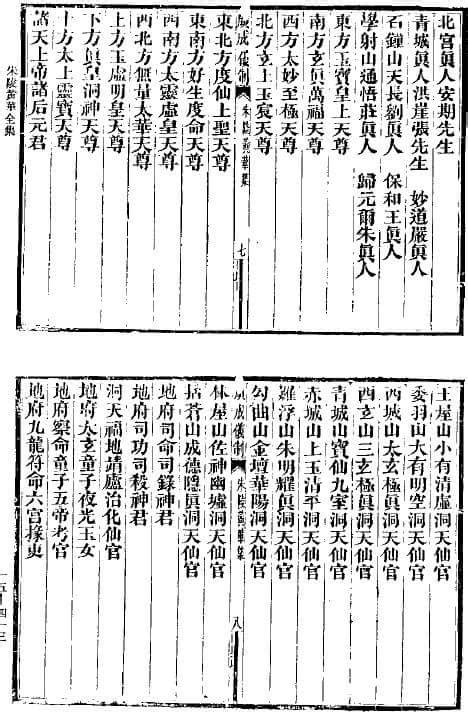 北宮眞人安期先生
青城眞人洪崖張先生　妙道嚴眞人
石鐘山天長劉眞人　保和王眞人
學射山通悟莊眞人　歸元爾朱眞人
東方玉寶皇上天尊
南方玄眞萬福天尊
西方太妙至極天尊
北方玄上玉宸天尊
成儀制
七
東北方度仙上聖天尊
東南方好生度命天尊
西南方太靈虛皇天尊
西北方無量太華天尊
上方玉虛明皇天尊
下方眞皇洞神天尊
十方太上靈寶天尊
諸天上帝諸后元君
朱陵黃華全集
王屋山小有清虛洞天仙官
委羽山大有明空洞天仙官
西城山太玄極眞洞天仙官
西玄山三玄極眞洞天仙官
青城山寶仙九室洞天仙官
赤城山上玉清平洞天仙官
羅浮山朱明耀眞洞天仙官
勾曲山金壇華陽洞天仙官
成儀制
八
林屋山佐神幽墟洞天仙官
括蒼山成德隱眞洞天仙官
地府司命司錄神君
地府司功司殺神君
洞天福地靖廬治化仙官
地府太玄童子夜光玉女
地府察命童子五帝考官
地府九龍符命六宮掾吏